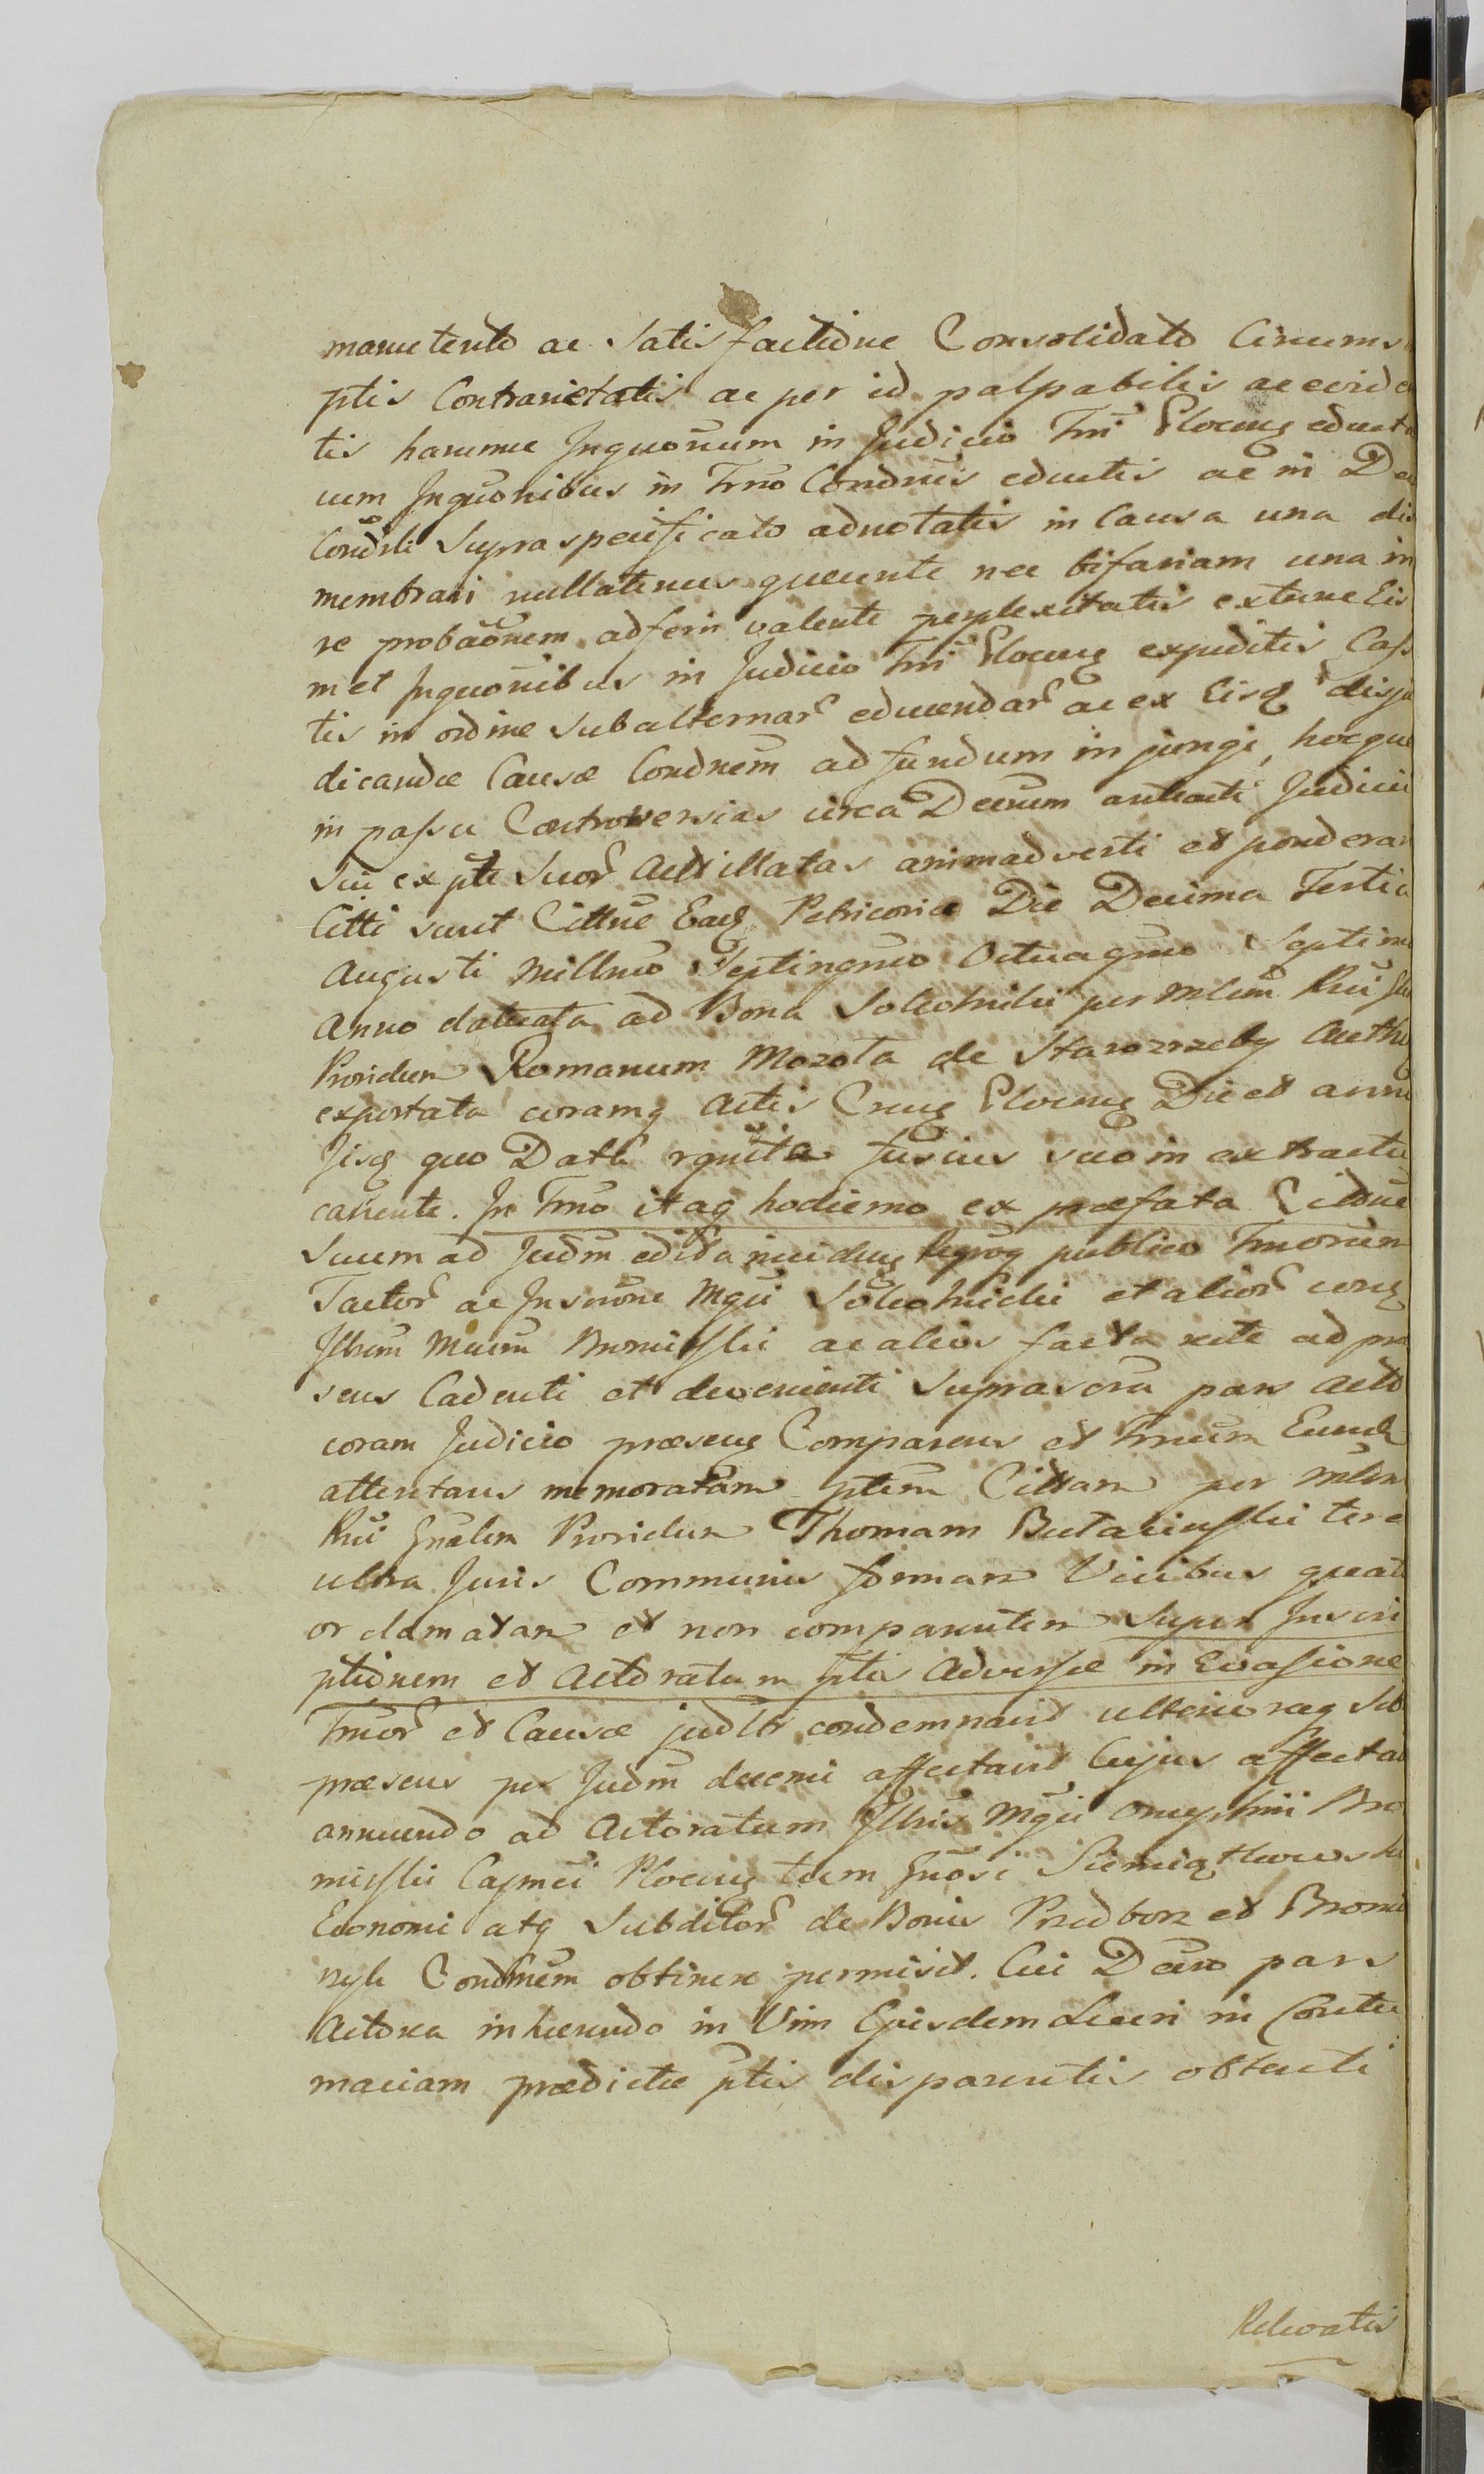 manutento ac Satisfactione Consolidato Circums
ptis Contrarietatis ac per id palpabilis ac evide
tis harumce Inquonum in Judicio Tmi Plocens educta
cum Inquonibus in Tmo Condnis eductis ac in De
Condsli Supraspecificato adnotatis in Causa una dis
membrari nullatenus queunte nec bifariam una in
re probaonem adferri valente perplexitatis extunc Eis
met Inquonibus in Judicio Tmi Plocens expeditis Cass
tis in ordine subalternar educendar ac ex Eisq disju
dicandæ Causæ Condnem ad fundum injungi, hocque
in passu Controversias circa Decrum anteacti Judicii
Sui ex pte Suor Act illatas animadverti et ponderar
Citti sunt Cittne Eaq Petricoviæ Die Decima Tertia
Augusti Millmo Septingmo Octuagmo Septimo
Anno datuata ad Bona Solechniki per Mlem Rni Gn
Providum Romanum Mozota de Starozrzeby Authe
exportata coramq Actis Crens Plocens Die et anno
Iisq quo Data rgnita fusius suo in extractu
canente. In Tmo itaq hodierno ex præfata Cittone
Suum ad Judm edita incidens Regrog publico Tmorum
Tactor ac Inscrone Mgci Solechnicki et alior cons
Illrem Mcum Bromirski ac alios facta rite ad præ
sens Cadenti et devenienti Suprascra pars Acto
coram Judicio præsens Comparens et Tmum Eund
attentans memoratam ptem Cittam per Mlem
Rni Gnalem Providum Thomam Butarinski tere
ultra Juris Communis formam Vicibus quat
or clamatam et non comparentem Super Inscri
ptionem et Actoratum ptis Adversæ in Evasione
Tmor et Causæ judltr condemnavit ulteriusrq Sib
præsens per Judm decerni affectavit Cujus affectat
annuendo ad Actoratum Illris Mgci Onuphrii Bro
mirski Capnei Plocens tum Gnosi Siemiątkowski
Economi atq Subditor de Bonis Przedborz et Bromie
rzyk Condmnem obtinere permisit. Cui Decro pars
Actorea inhærendo in Vim Ejusdem Lucri in Contu
maciam prædictæ ptis disparentis obtenti
Relevatis